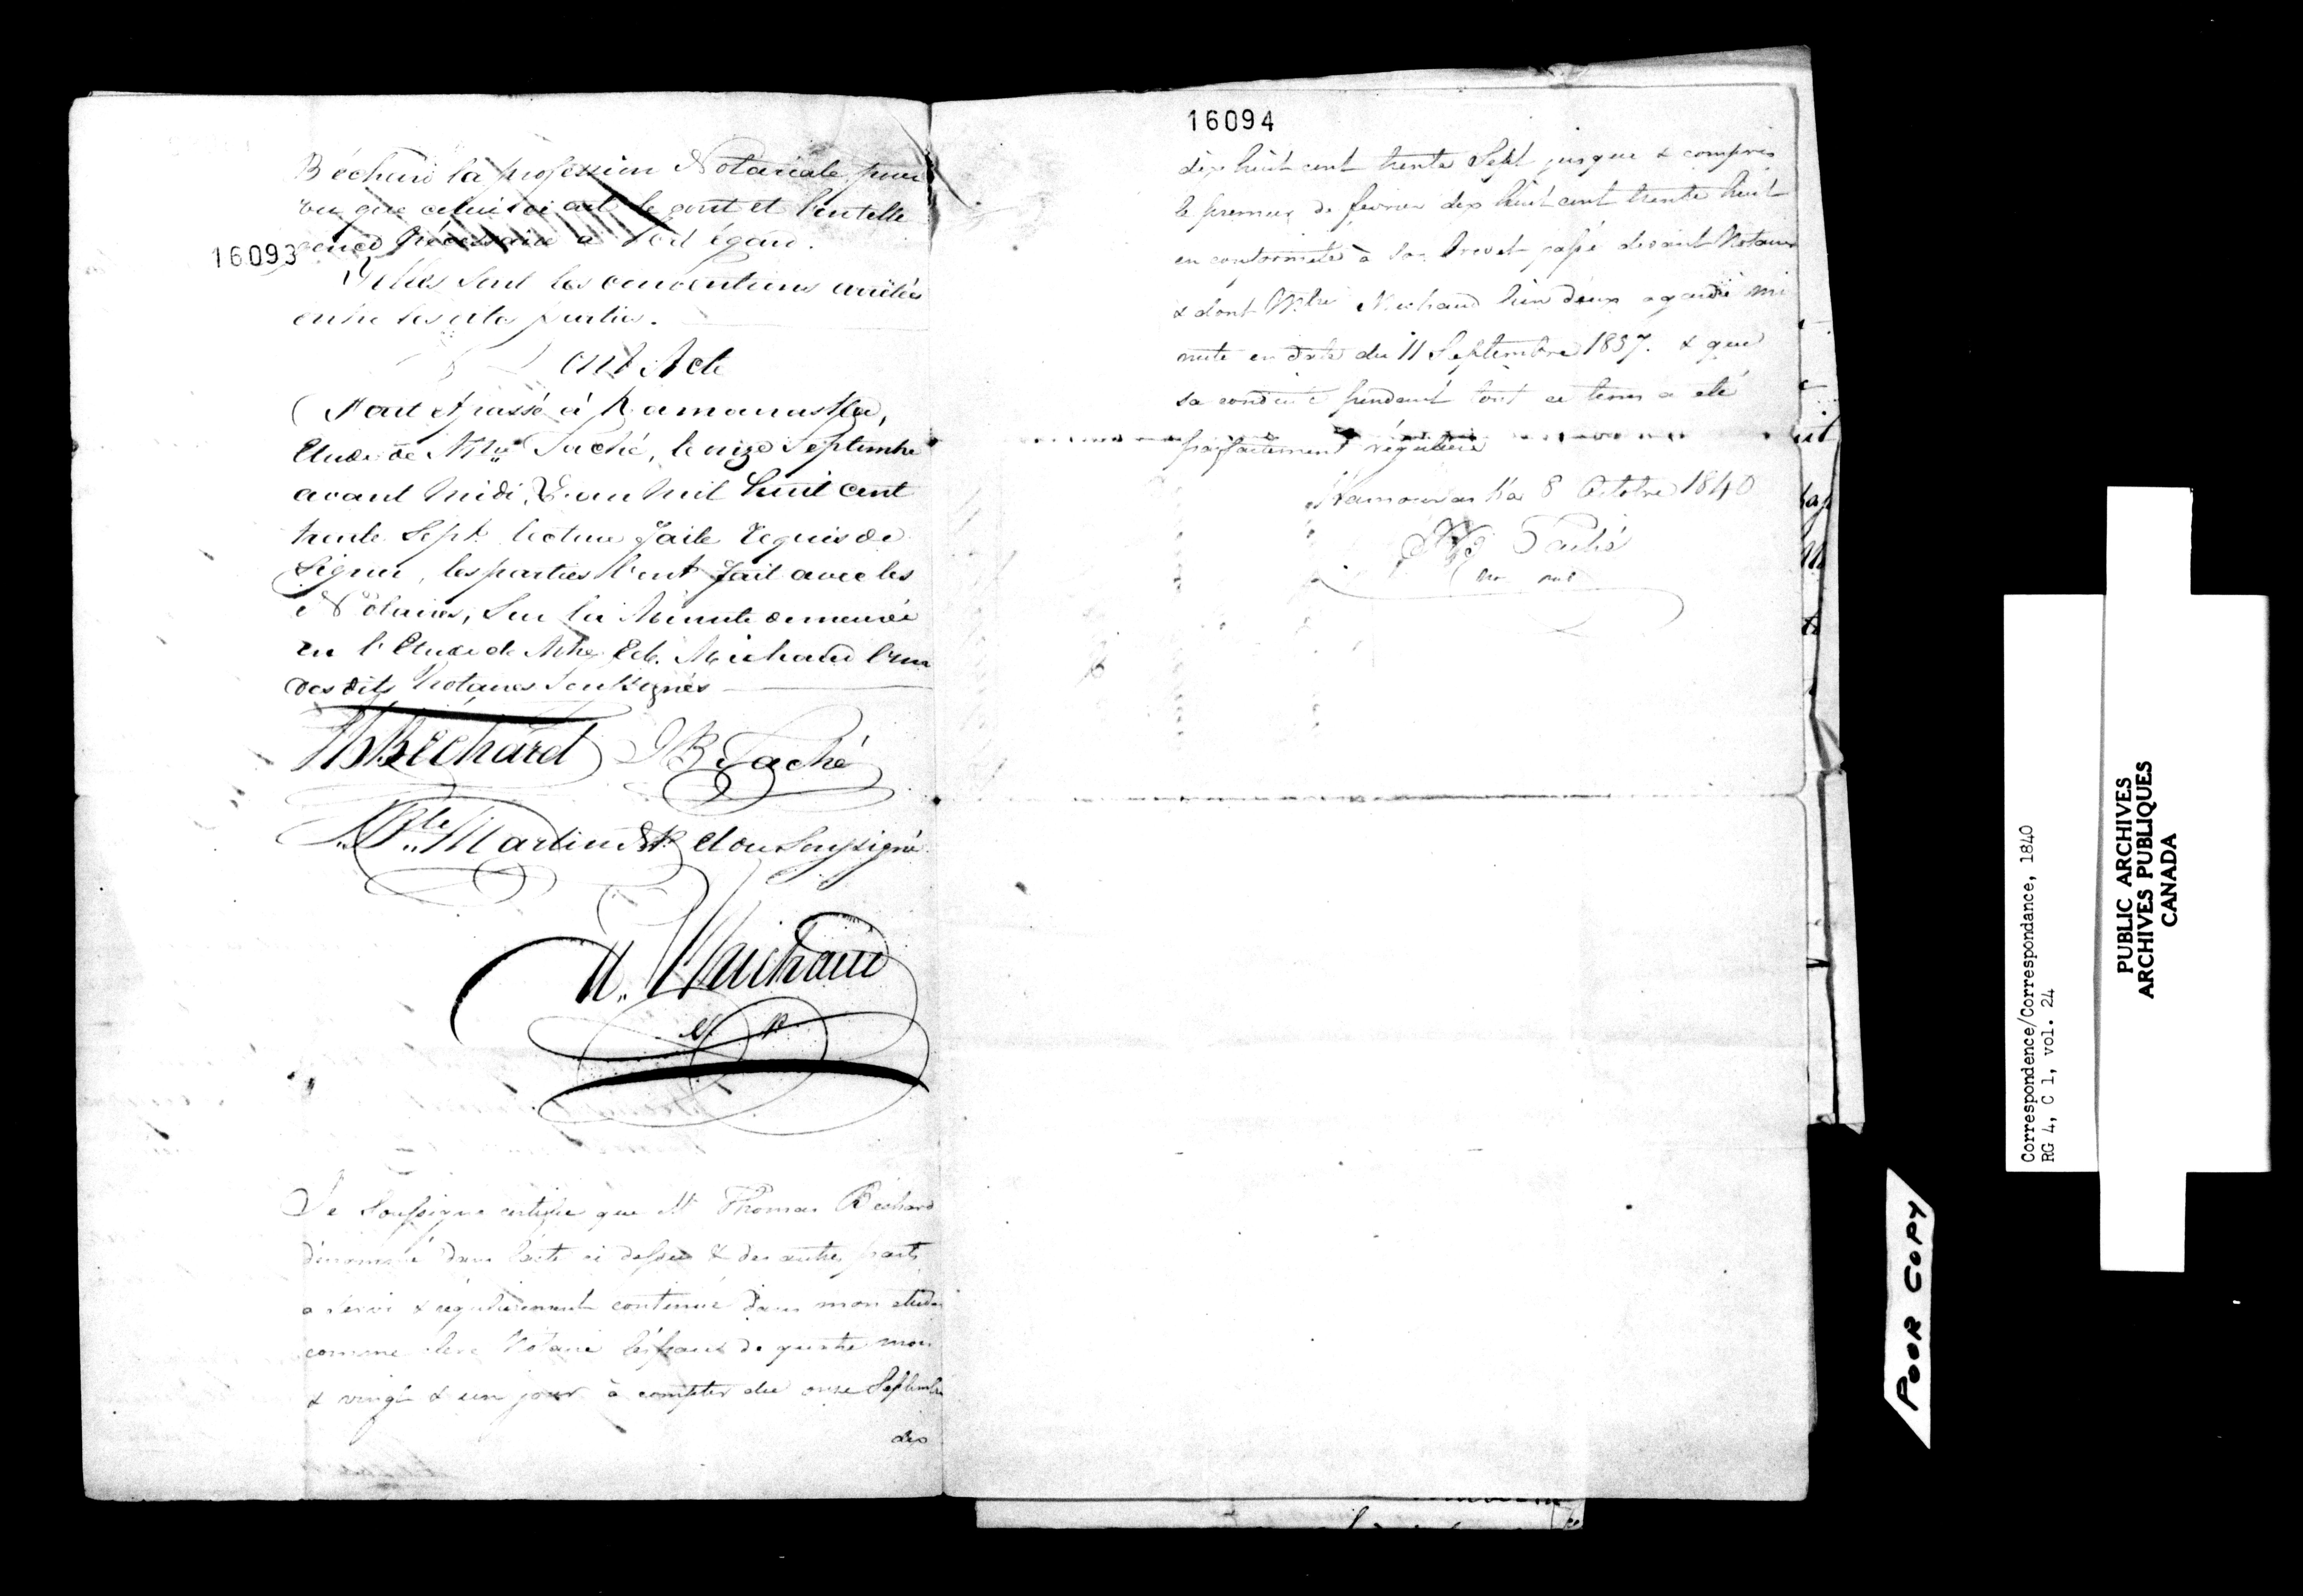 16093
Béchard la profession Notariale, pour
vu que celui ci ait le gout et l'intelle
gence nécessaire à cet égard.
Telles sont les conventions arrêtées
entre les dites parties.
Dont Acte
Fait et passé à Kamouraska,
Etude de Mtre Taché, le onze Septembre
avant midi, L'an mil huit cent
trente Sept. lecture faite Requis de
Signer, les parties l'ont fait avec les
Notaires, Sur la Minute demeurée
en l'Etude de Mtre Michaud l'un
des dits Notaires Soussignés
Béchard JB Taché
J. Bte. Martin N.P. et ou Soussigné
Michaud
N P
Je Soussigné certifie que Mr Thomas Bechard
dénommé dans l'acte ci dessus & des autres parts
a servi & régulierement continué dans mon etude
comme eleve Notaire l'espace de quatre mois
& vingt & un jour à compter du onze Septembre
dix
16094
dix huit cent trente Sept jusque & compris
le premier de fevrier dix huit cent trente huit
en conformité à son brevet passé devant Notaires
& dont Mtre Michaud l'un d'eux a gardé mi
nute en date du 11 Septembre 1837. & que
sa conduite pendant tout ce tems a été
parfaitement régulière
Kamouraska 8 Octobre 1840
JB Taché
Not pub
Correspondence/Correspondance, 1840
RG 4, C 1, vol. 24
PUBLIC ARCHIVES
ARCHIVES PUBLIQUES
CANADA
POOR COPY